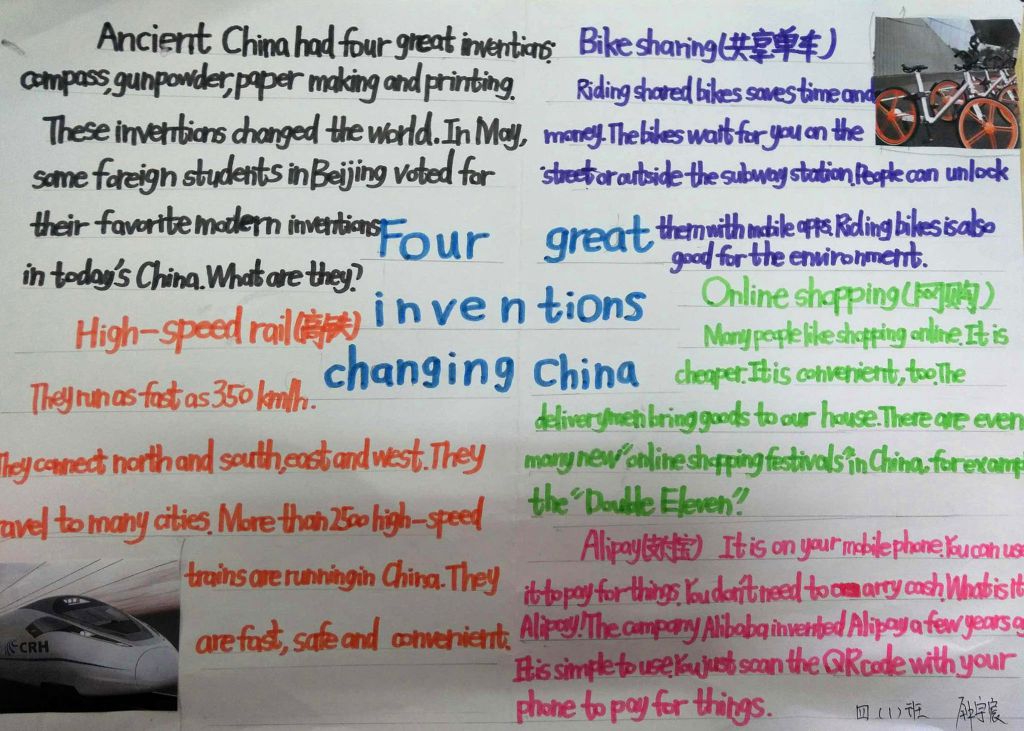 Ancient China had four great inventions:
compass, gunpowder, paper making and printing.
These inventions changed the world. In May,
some foreign students in Beijing voted for
their favorite modern inventions
in today's China. What are they?
Four great
inventions
changing China
High-speed rail(高铁)
They run as fast as 350 km/h.
They connect north and south, east and west. They
ravel to many cities. More than 2500 high-speed
trains are running in China. They
are fast, safe and convenient.
CRH
Bike sharing(共享单车)
Riding shared bikes saves time and
money. The bikes wait for you on the
street or outside the subway station. People can unlock
them with mobile apps. Riding bikes is also
good for the environment.
Online shopping(网购)
Many people like shopping online. It is
cheaper. It is convenient, too. The
deliverymen bring goods to our house. There are even
many new "online shopping festivals" in China, for examp
the "Double Eleven".
Alipay(支付宝) It is on your mobile phone. You can use
it to pay for things. You don't need to carry cash. What is it
Alipay! The company Alibaba invented Alipay a few years ag
It is simple to use. You just scan the QR code with your
phone to pay for things.
四(1)班 钟宇宸